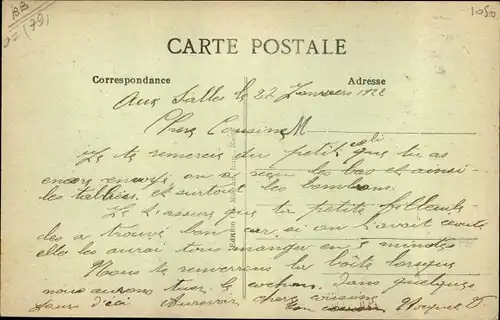 BB
(79)
1050
CARTE POSTALE
Correspondance
Adresse
Aux Salles le 22 Janviers 1922
Chere Cousine M
Je te remercie du petit colis que tu as
encore envoyé on a reçu les bas et ainsi
les tabliers et surtout les bonbons.
Je t'assure que ta petite
des a trouvé bon car si on l'avait écouté
elle les aurai tous manger en 5 minutes
Nous te renverrons la boîte lorsque
nous aurons tuer le cochon. dans quelques
jours d'ici Aurevoir chere cousine